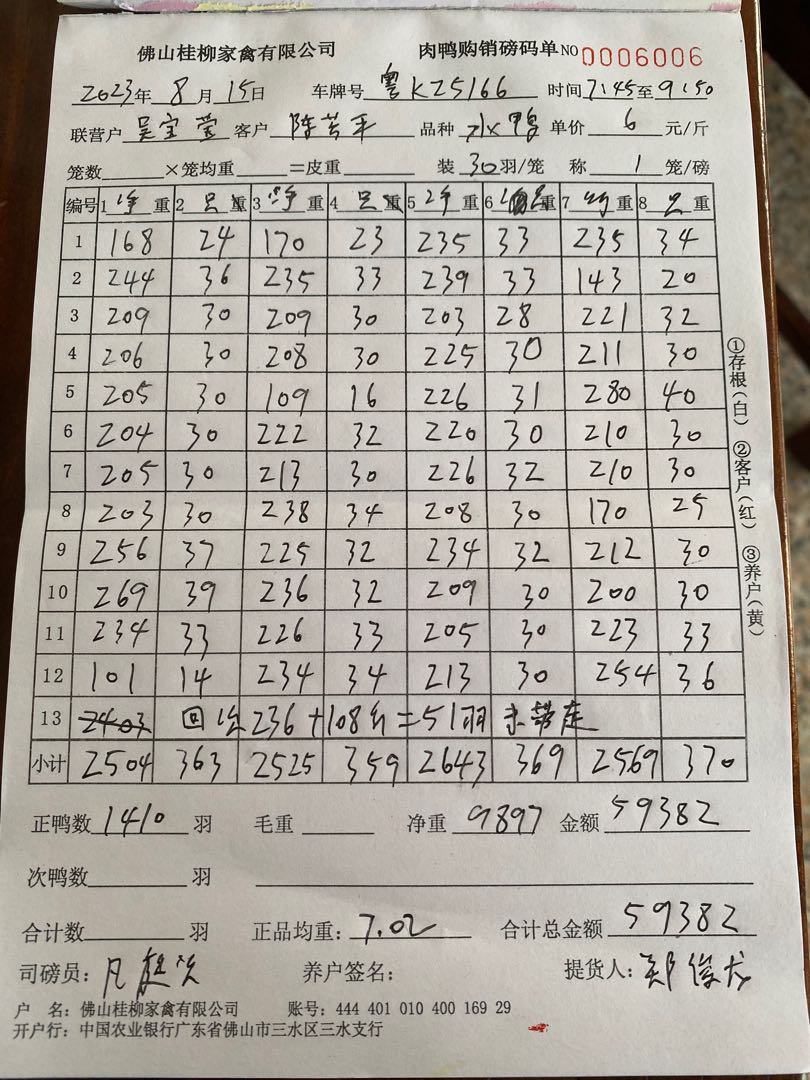 佛山桂柳家禽有限公司 肉鸭购销磅码单 NO 0006006
2023年 8月 15日 车牌号 粤KZ5166 时间 7:45至9:50
联营户 吴宝莹 客户 陈芸平 品种 水鸭 单价 6 元/斤
笼数 ×笼均重 =皮重 装 30 羽/笼 称 1 笼/磅
编号 1 净 重 2 只 重 3 净 重 4 只 重 5 净 重 6 只 重 7 净 重 8 只 重
1 168 24 170 23 235 33 235 34
2 244 36 235 33 239 33 143 20
3 209 30 209 30 203 28 221 32
4 206 30 208 30 225 30 211 30
5 205 30 109 16 226 31 280 40
6 204 30 222 32 220 30 210 30
7 205 30 213 30 226 32 210 30
8 203 30 238 34 208 30 170 25
9 256 37 225 32 234 32 212 30
10 269 39 236 32 209 30 200 30
11 234 33 226 33 205 30 223 33
12 101 14 234 34 213 30 254 36
13 2403 回 236+108斤=51羽 未带走
小计 2504 363 2525 359 2643 369 2569 370
正鸭数 1410 羽 毛重 净重 9897 金额 59382
次鸭数 羽
合计数 羽 正品均重: 7.02 合计总金额 59382
司磅员: 养户签名: 提货人: 郑俊龙
户 名: 佛山桂柳家禽有限公司 账号: 444 401 010 400 169 29
开户行: 中国农业银行广东省佛山市三水区三水支行
①存根(白) ②客户(红) ③养户(黄)